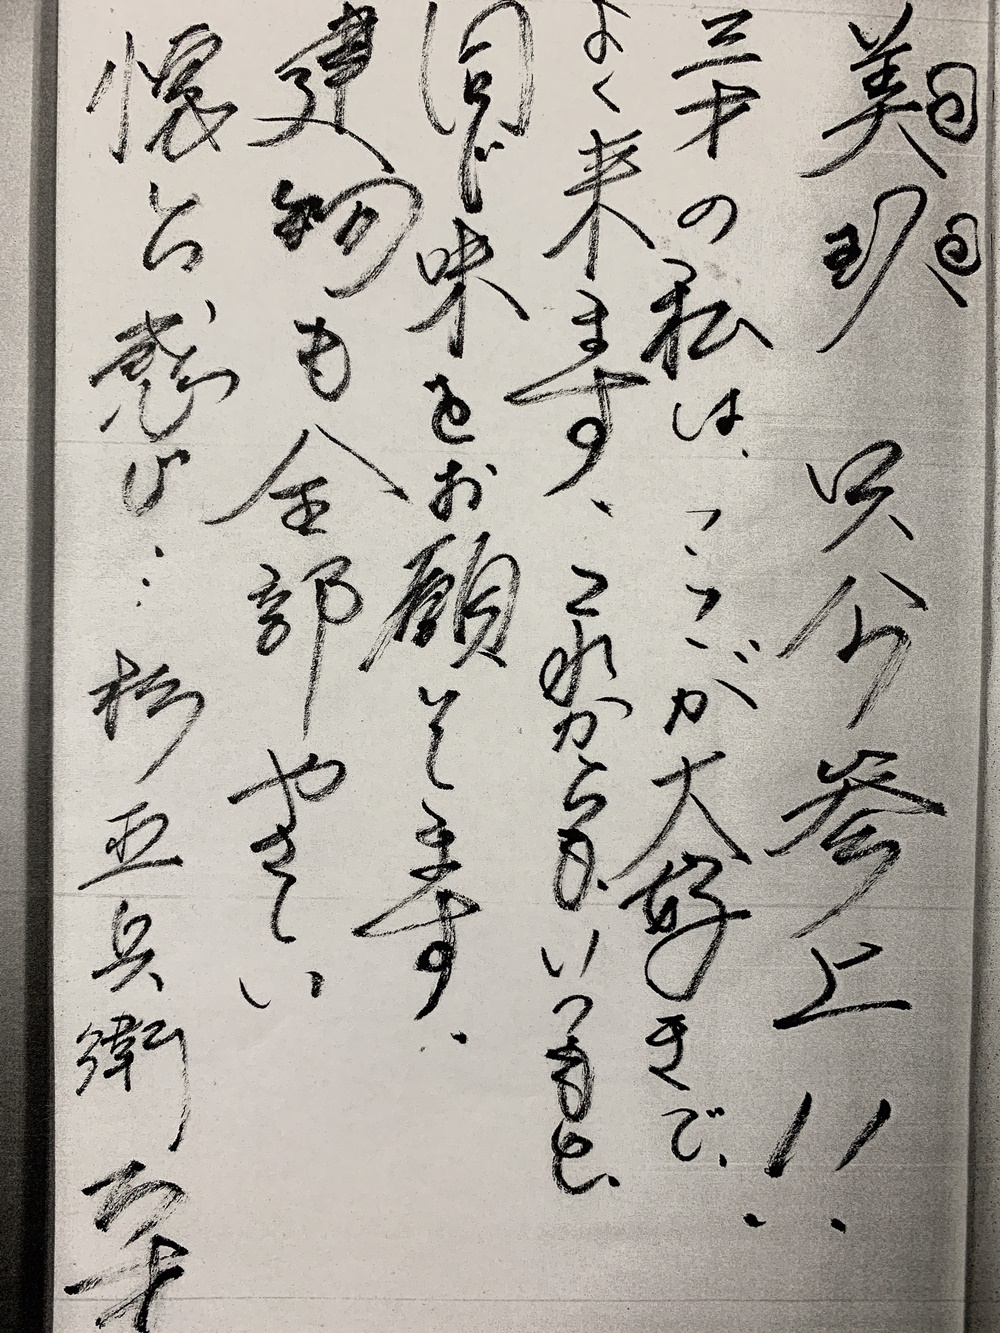 美 只今参上!!
三才の私は、ここが大好きで、
よく来ます、これからも、いつもと
同じ味をお願いします、
建物も全部やさしい
懐 感 兵衛